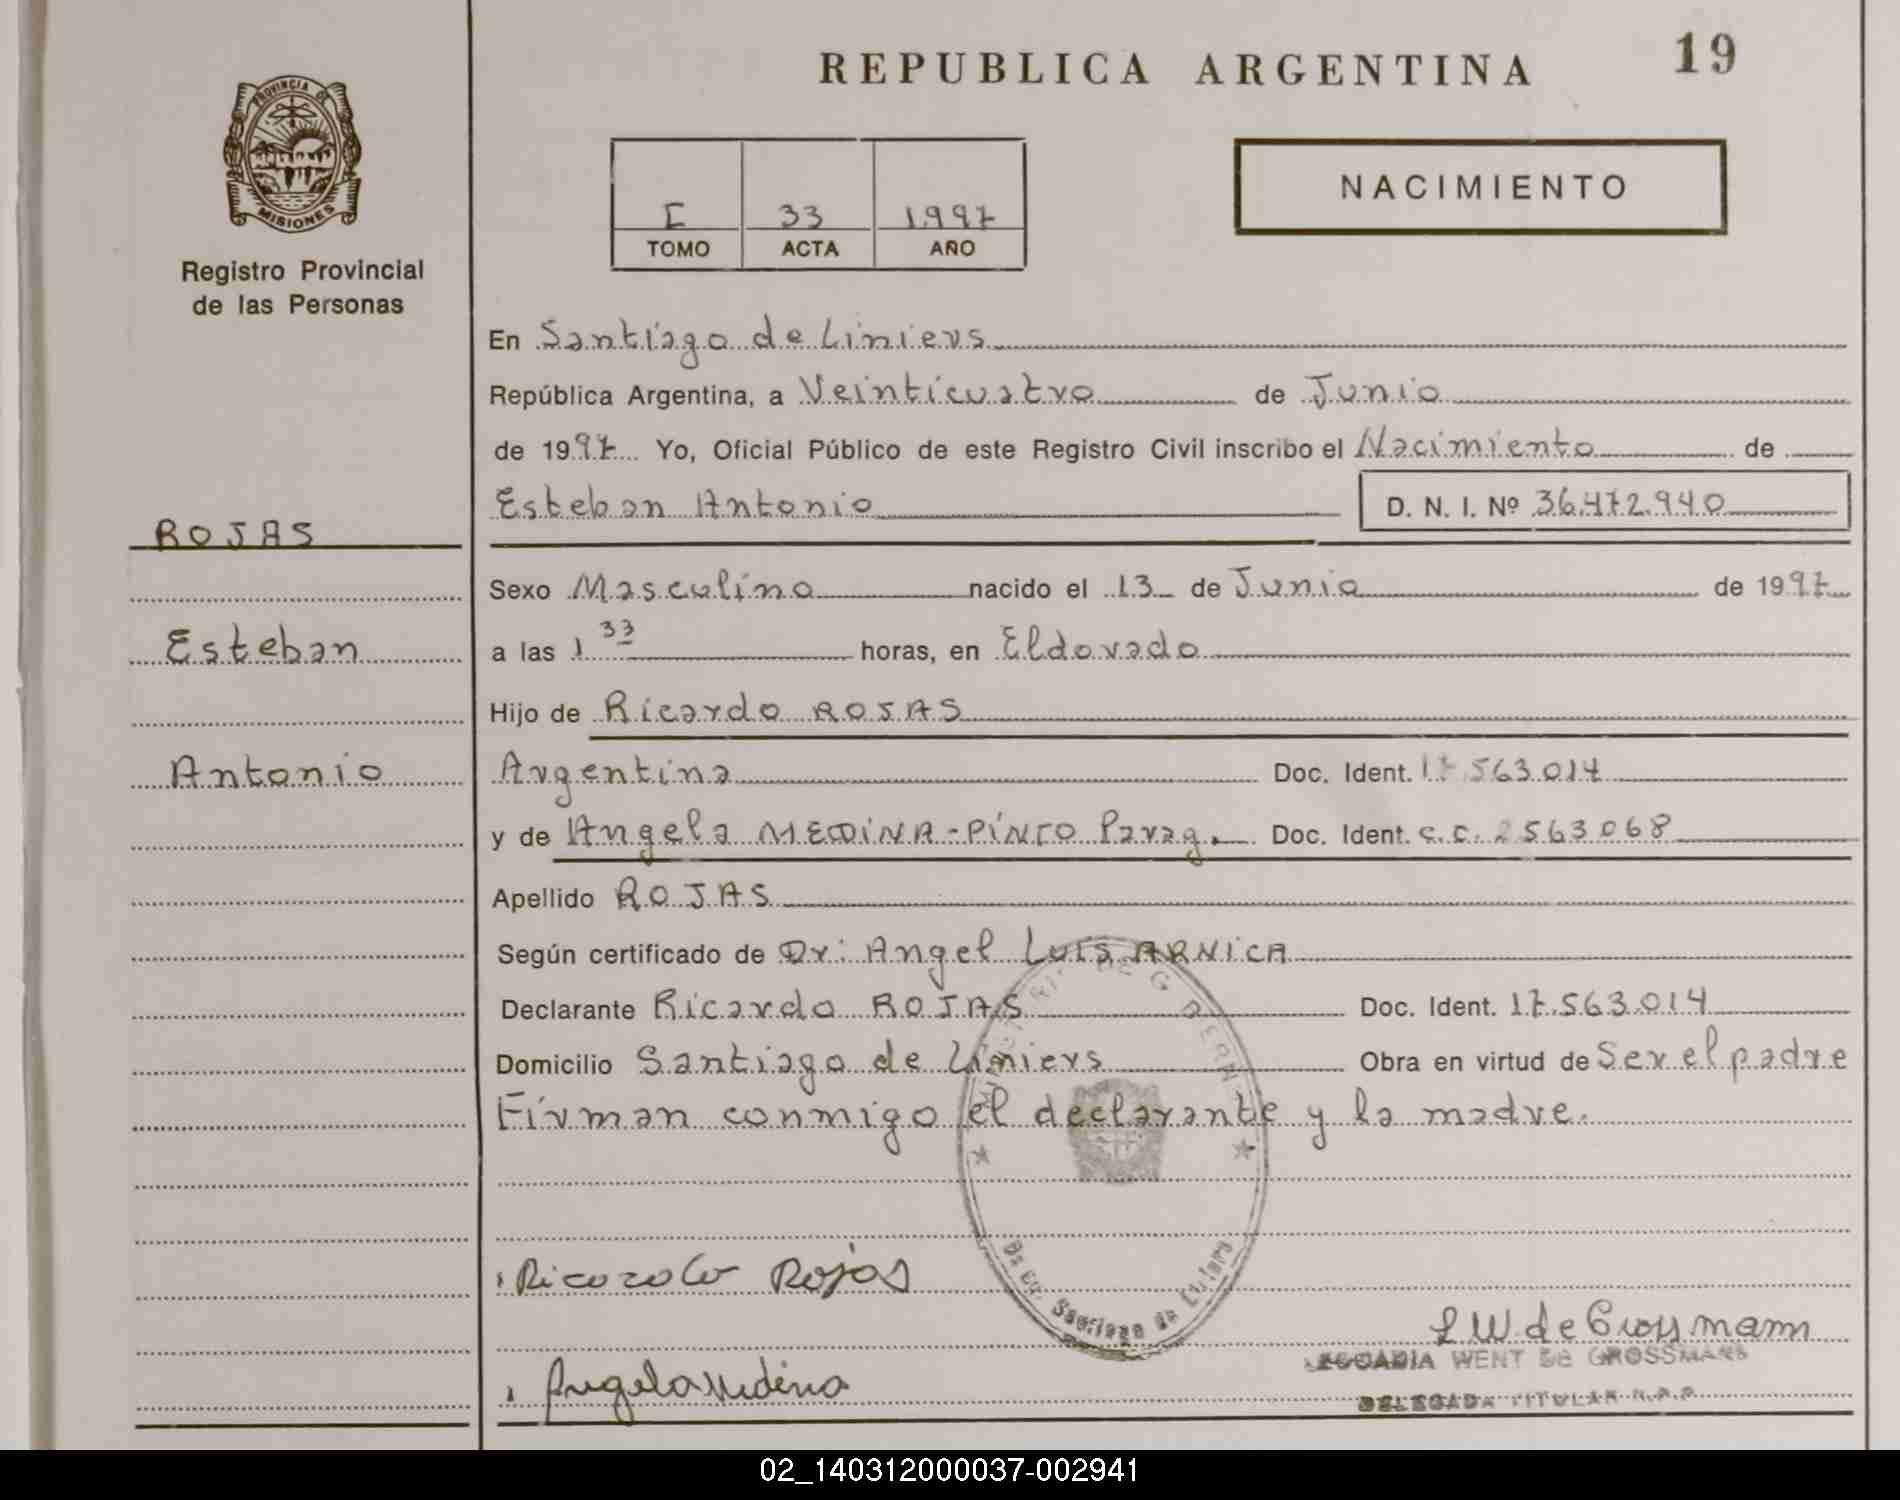 REPUBLICA ARGENTINA
19
PROVINCIA DE
MISIONES
Registro Provincial
de las Personas
I 33 1997
TOMO ACTA AÑO
NACIMIENTO
En Santiago de Liniers
República Argentina, a Veinticuatro de Junio
de 1997 Yo, Oficial Público de este Registro Civil inscribo el Nacimiento de
Esteban Antonio D. N. I. Nº 36.472.940
ROJAS
Sexo Masculino nacido el 13 de Junio de 1997
Esteban
a las 1 33 horas, en Eldorado
Hijo de Ricardo ROJAS
Antonio
Argentina Doc. Ident. 17.563.014
y de Angela MEDINA-PINTO Parag. Doc. Ident. C.C. 2563068
Apellido ROJAS
Según certificado de Dr: Angel Luis ARNICA
Declarante Ricardo ROJAS Doc. Ident. 17.563.014
Domicilio Santiago de Liniers Obra en virtud de Ser el padre
Firman conmigo el declarante y la madre.
Santiago de
Ricardo Rojas
L W de Grossmann
WENT DE GROSSMANN
Angela Medina
DELEGADA TITULAR R.P.P.
02_140312000037-002941